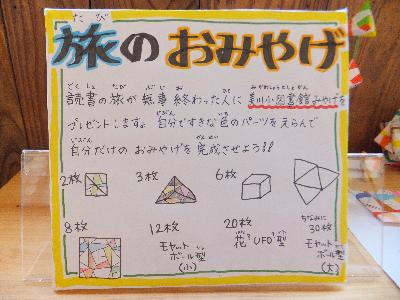 たび
旅のおみやげ
どくしょ たび ぶじ お ひと みかわしょうとしょかん
読書の旅が無事終わった人に美川小図書館みやげを
じぶん いろ
プレゼントします。自分ですきな色のパーツをえらんで
じぶん かんせい
自分だけのおみやげを完成させよう!!
2枚 3枚 6枚
8枚 12枚 20枚 ちなみに
30枚
モヤット
ボール型
(小)
花?UFO型
モヤット
ボール型
(大)